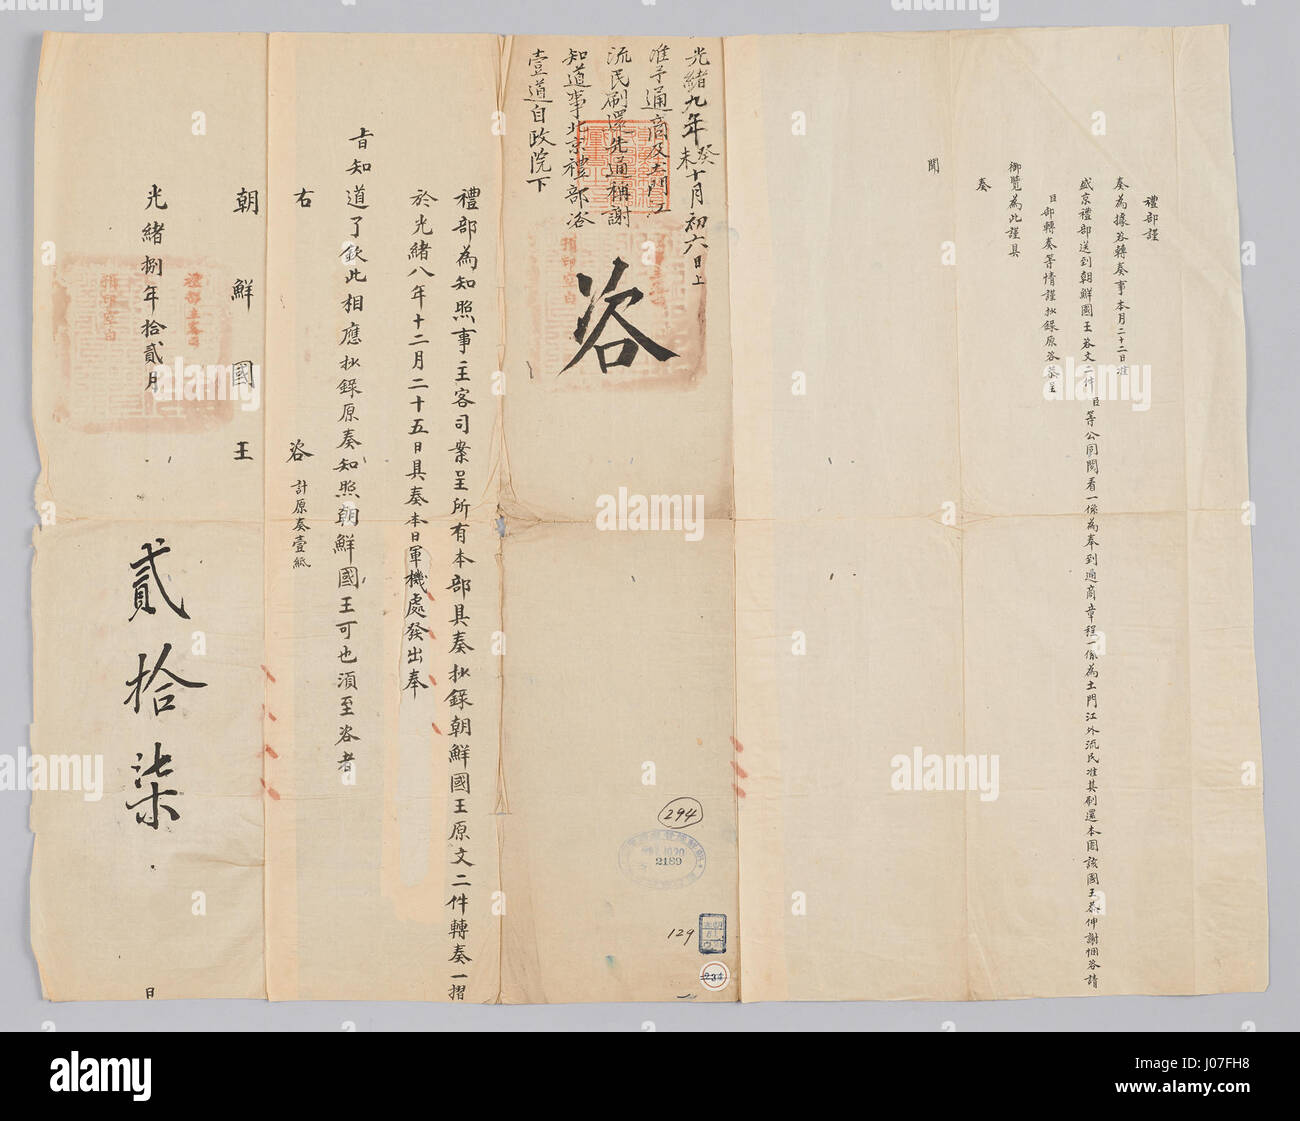 禮部謹
奏為據咨轉奏事本月二十二日准
盛京禮部送到朝鮮國王咨文二件臣等公同閱看一係為奉到通商章程一係為土門江外流民准其刷還本國該國王恭伸謝悃咨請
臣部轉奏等情謹抄錄原咨恭呈
御覽為此謹具
奏
聞
光緒九年癸未十月初六日上
准予通商及土門江
流民刷還先通稱謝
知道事北京禮部咨
壹道自政院下
咨
禮部為知照事主客司案呈所有本部具奏抄錄朝鮮國王原文二件轉奏一摺
於光緒八年十二月二十五日具奏本日軍機處發出奉
旨知道了欽此相應抄錄原奏知照朝鮮國王可也須至咨者
右咨 計原奏壹紙
朝鮮國王
光緒捌年拾貳月 日
貳拾柒
294
2189
129
234
alamy
alamy
Image ID: J07FH8
www.alamy.com